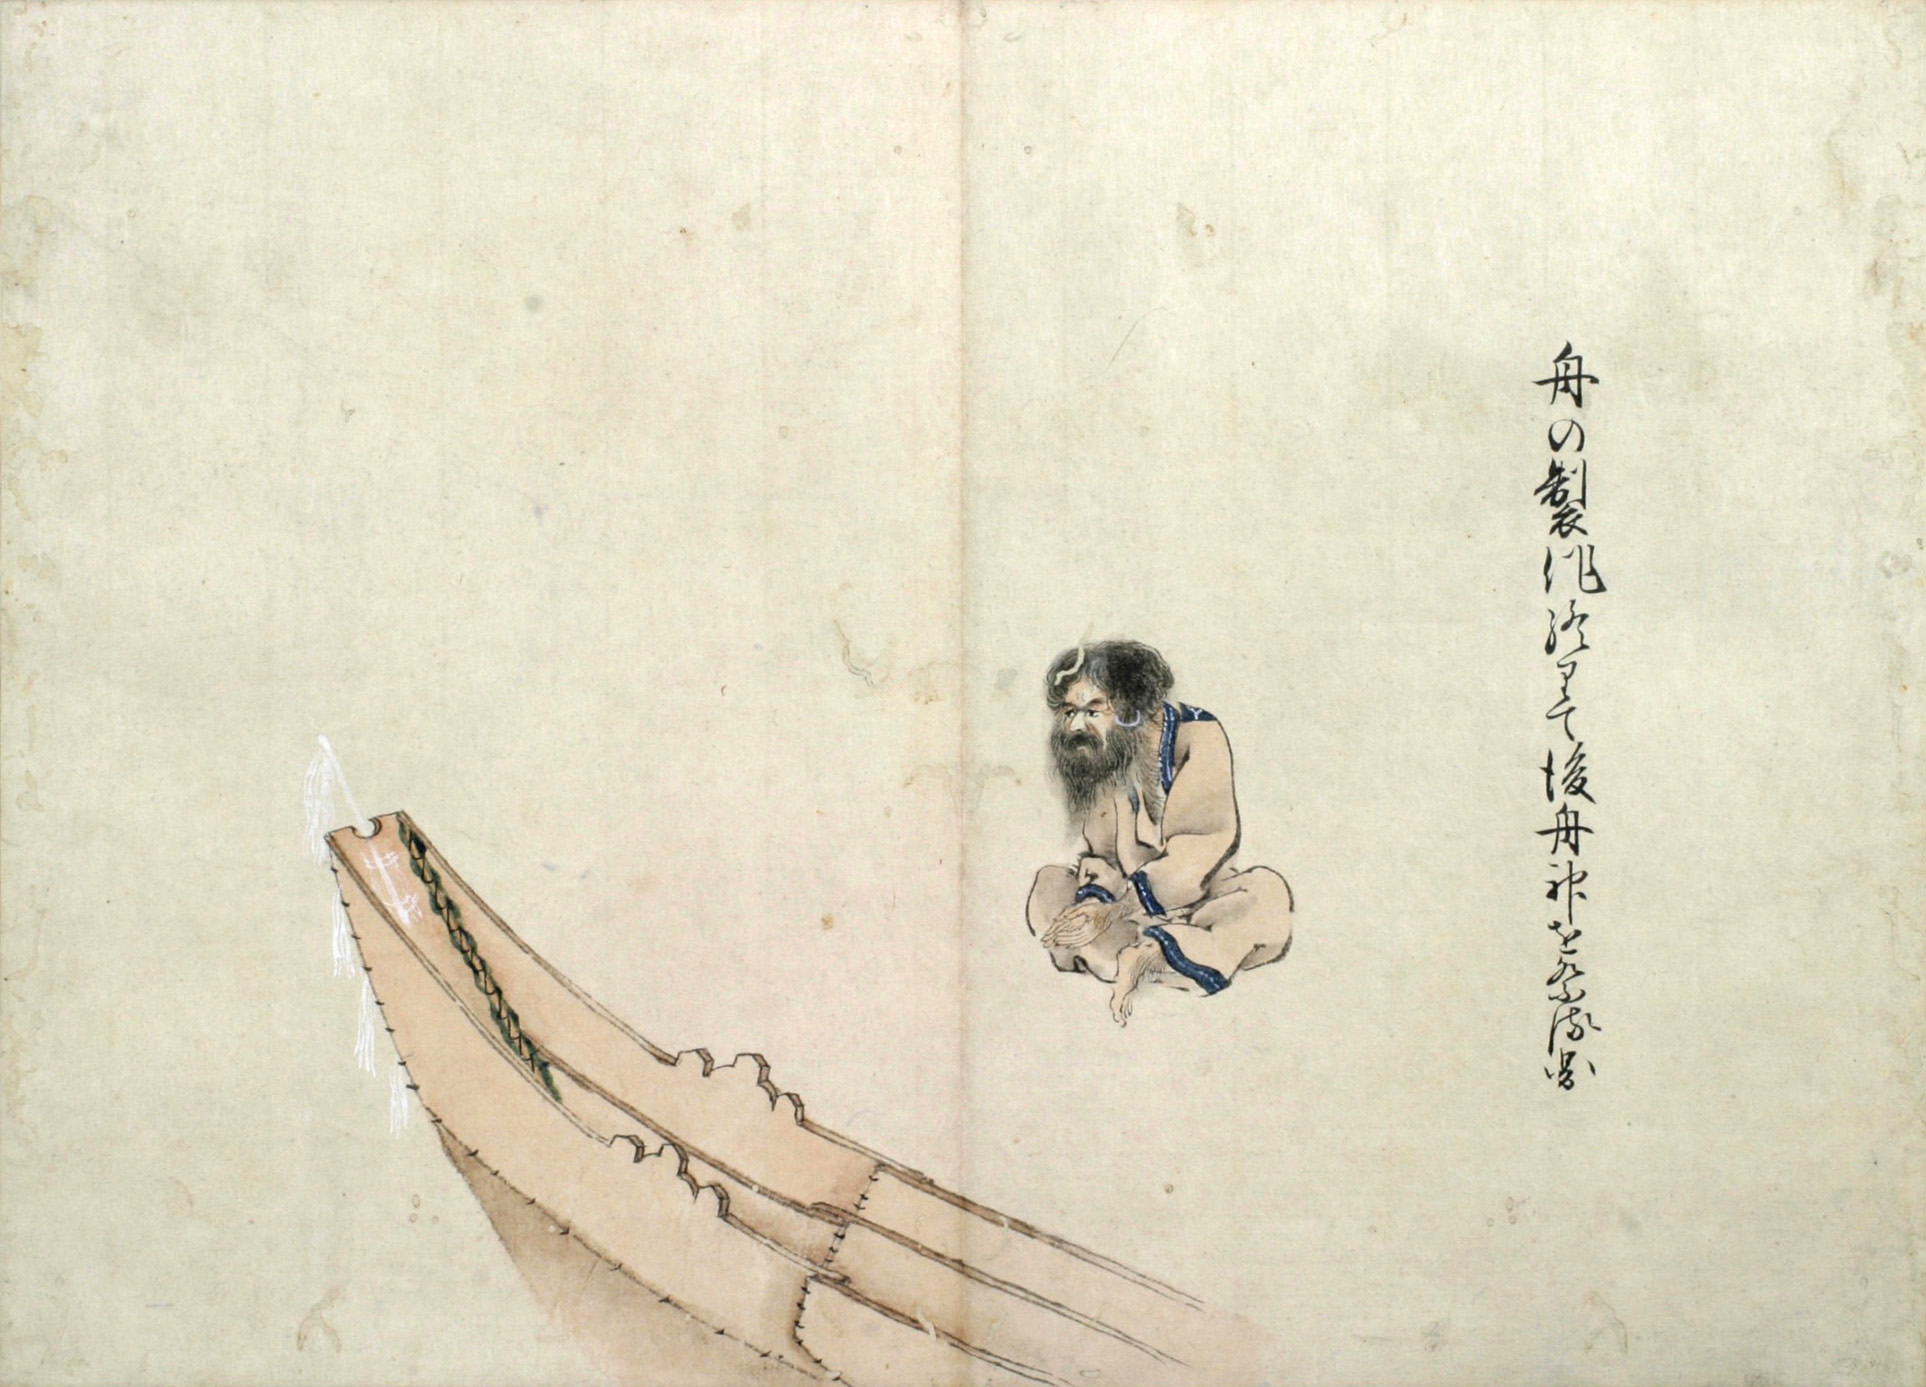 舟の製作終りて後舟神を祭る図